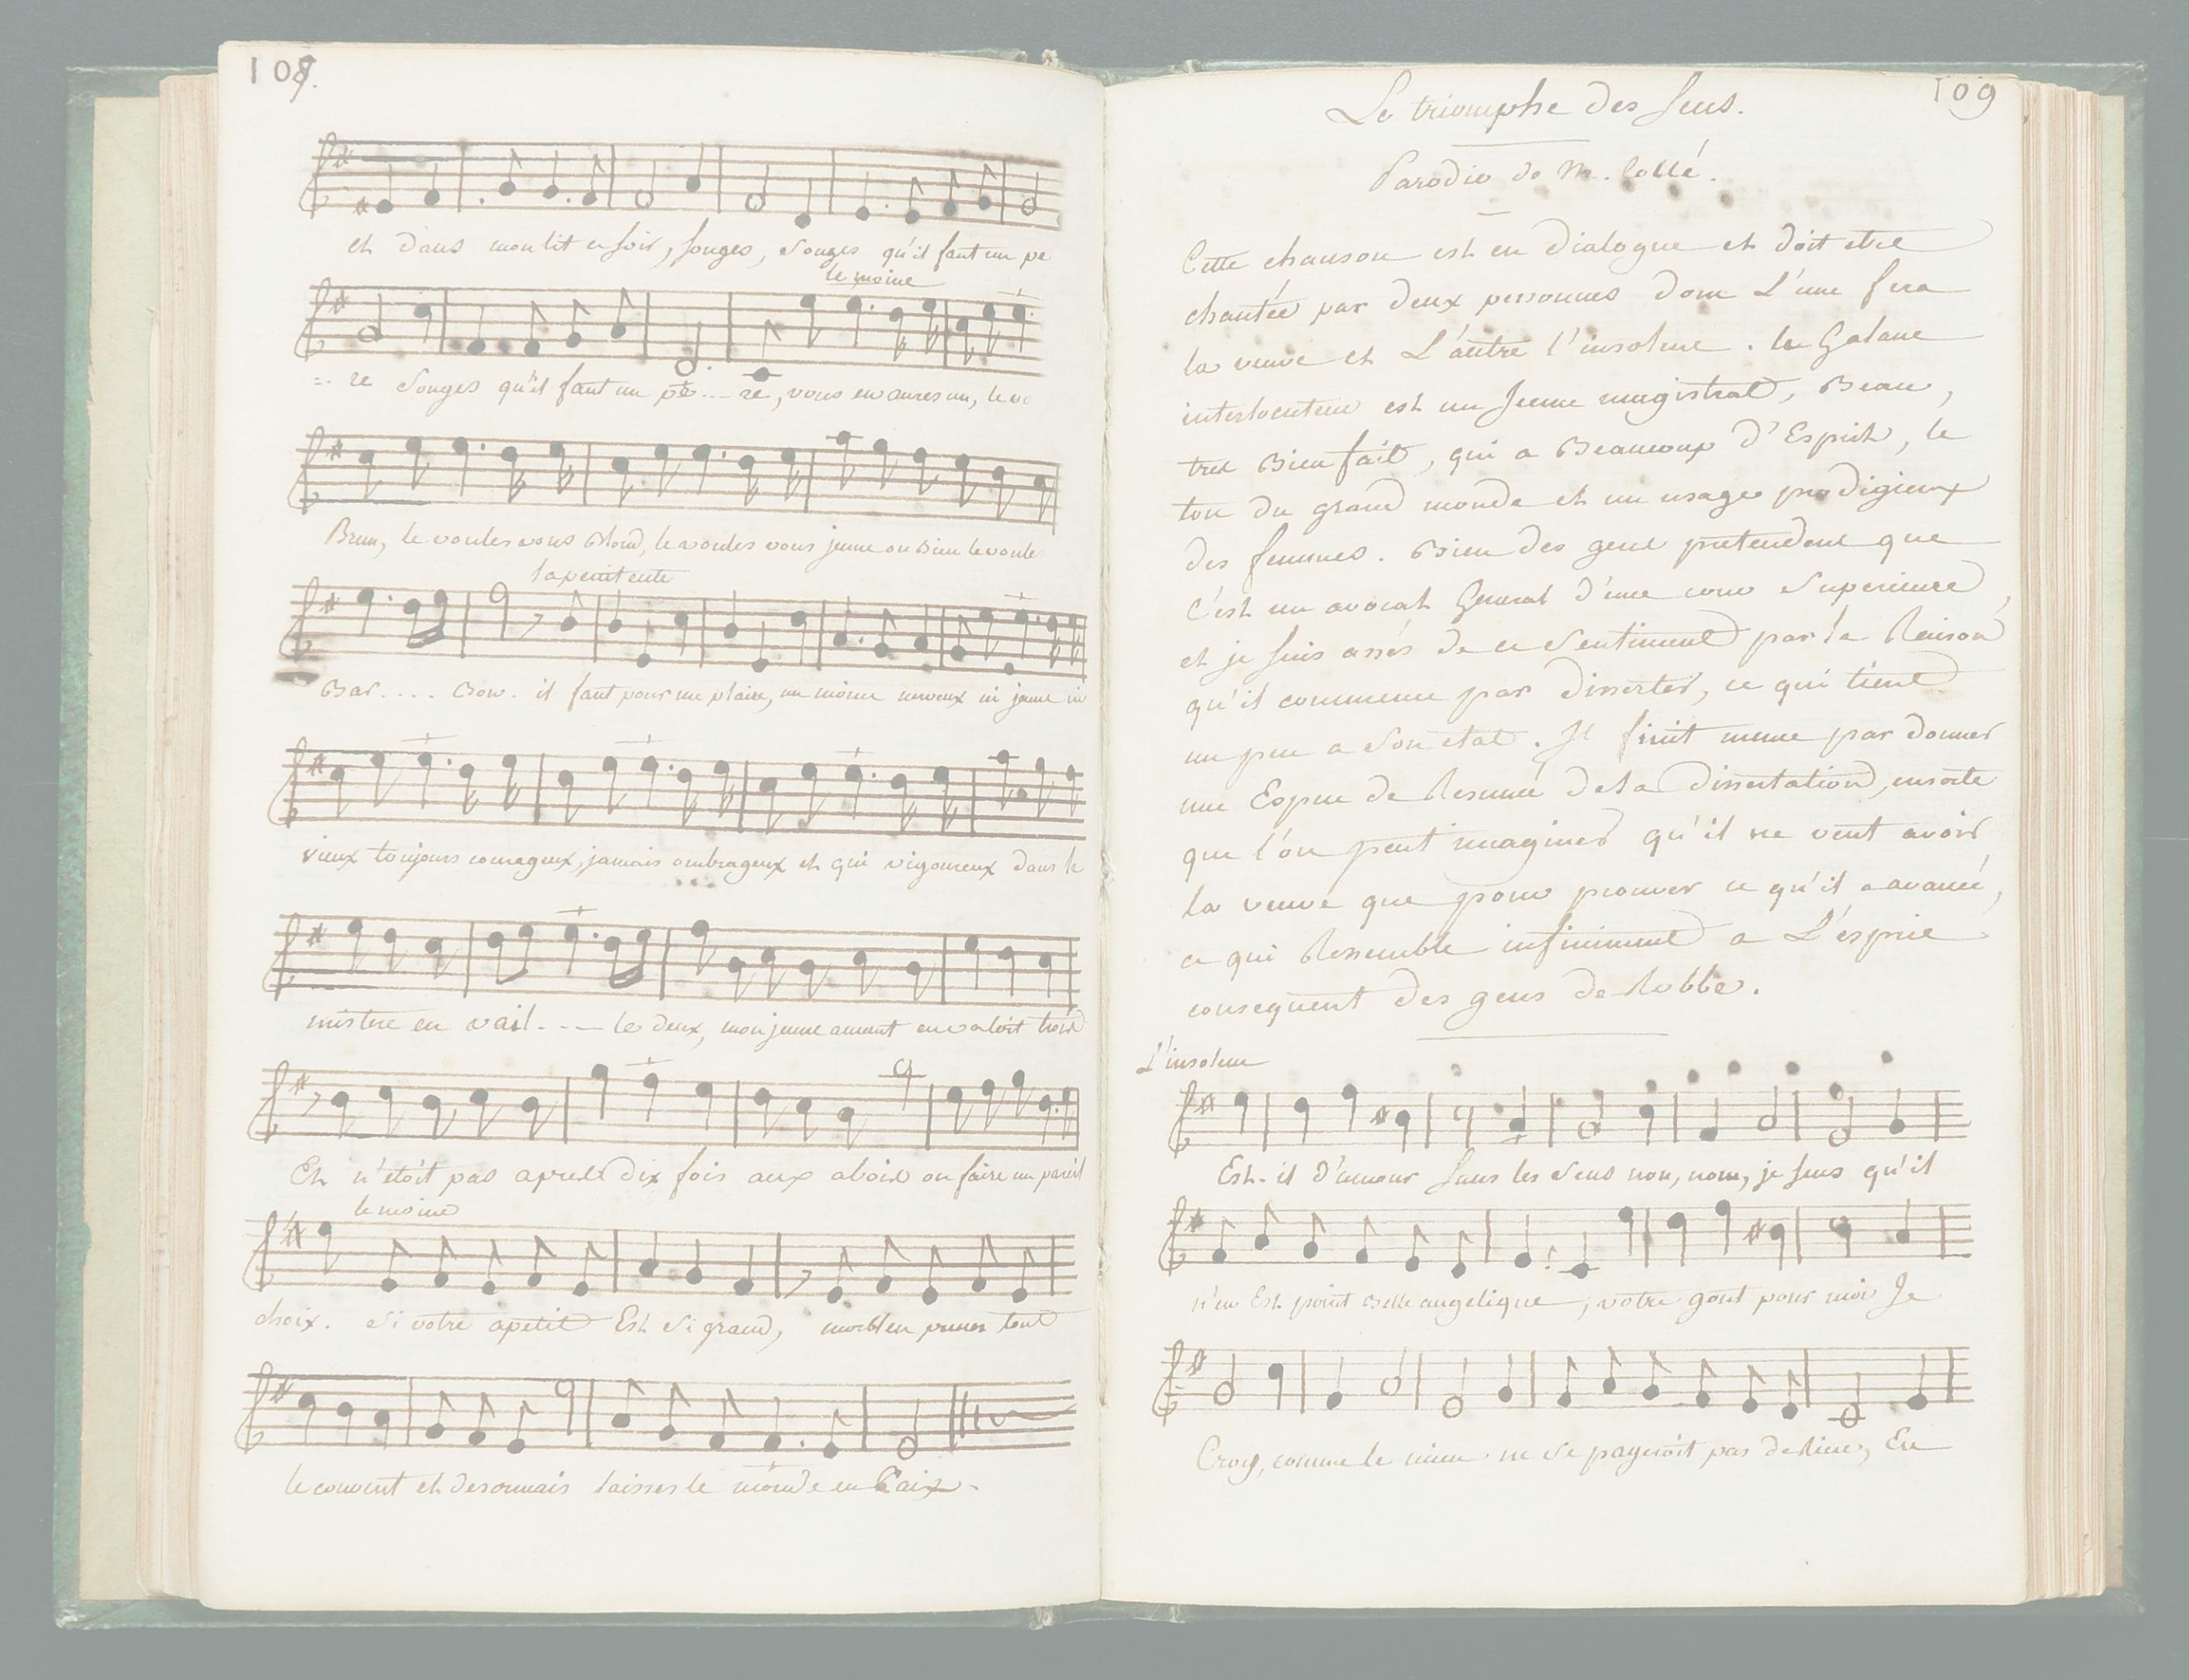 108.
et dans mon lit ce soir, songes, songes qu'il faut un pe
le moine
re songes qu'il faut un pe...re, vous en aures un, le vo
Brun, le voules vous Blond, le voules vous jeune ou Bien le voule
la penitente
Bar.... Bon. il faut pour me plaire, un moine nerveux ni jeune ni
vieux toujours courageux, jamais ombrageux et qui vigoureux dans le
mistere en vail... le deux, mon jeune amant en valoit trois
Et n'étoit pas apres dix fois aux abois on faire un pareil
le moine
choix. Si votre apetit Est si grand, morbleu prenes tout
le couvent et desormais laisses le monde en Paix.
109
Le triomphe des sens.
Parodie de M. Collé.
Cette chanson est en dialogue et doit etre
chantée par deux personnes dont L'une sera
la veuve et L'autre l'insolent. le Galant
interlocuteur est un jeune magistrat, Beau,
tres Bien fait, qui a Beaucoup d'Esprit, le
ton du grand monde et un usage prodigieux
des femmes. Bien des gens pretendent que
C'est un avocat General d'une cour Superieure,
et je suis assés de ce Sentiment par la Raison
qu'il commence par disserter, ce qui tient
un peu a Son etat. Il finit meme par donner
une Espece de Resumé de la dissertation, ensorte
que l'on peut imaginer qu'il ne veut avoir
la veuve que pour prouver ce qu'il a avancé,
ce qui Ressemble infiniment a L'esprit
consequent des gens de Robbe.
L'insolent
Est-il d'amour sans les Sens non, non, je sens qu'il
n'en Est point Belle angelique, votre gout pour moi Je
Croy, comme le mien ne se payeroit pas de Rien, En